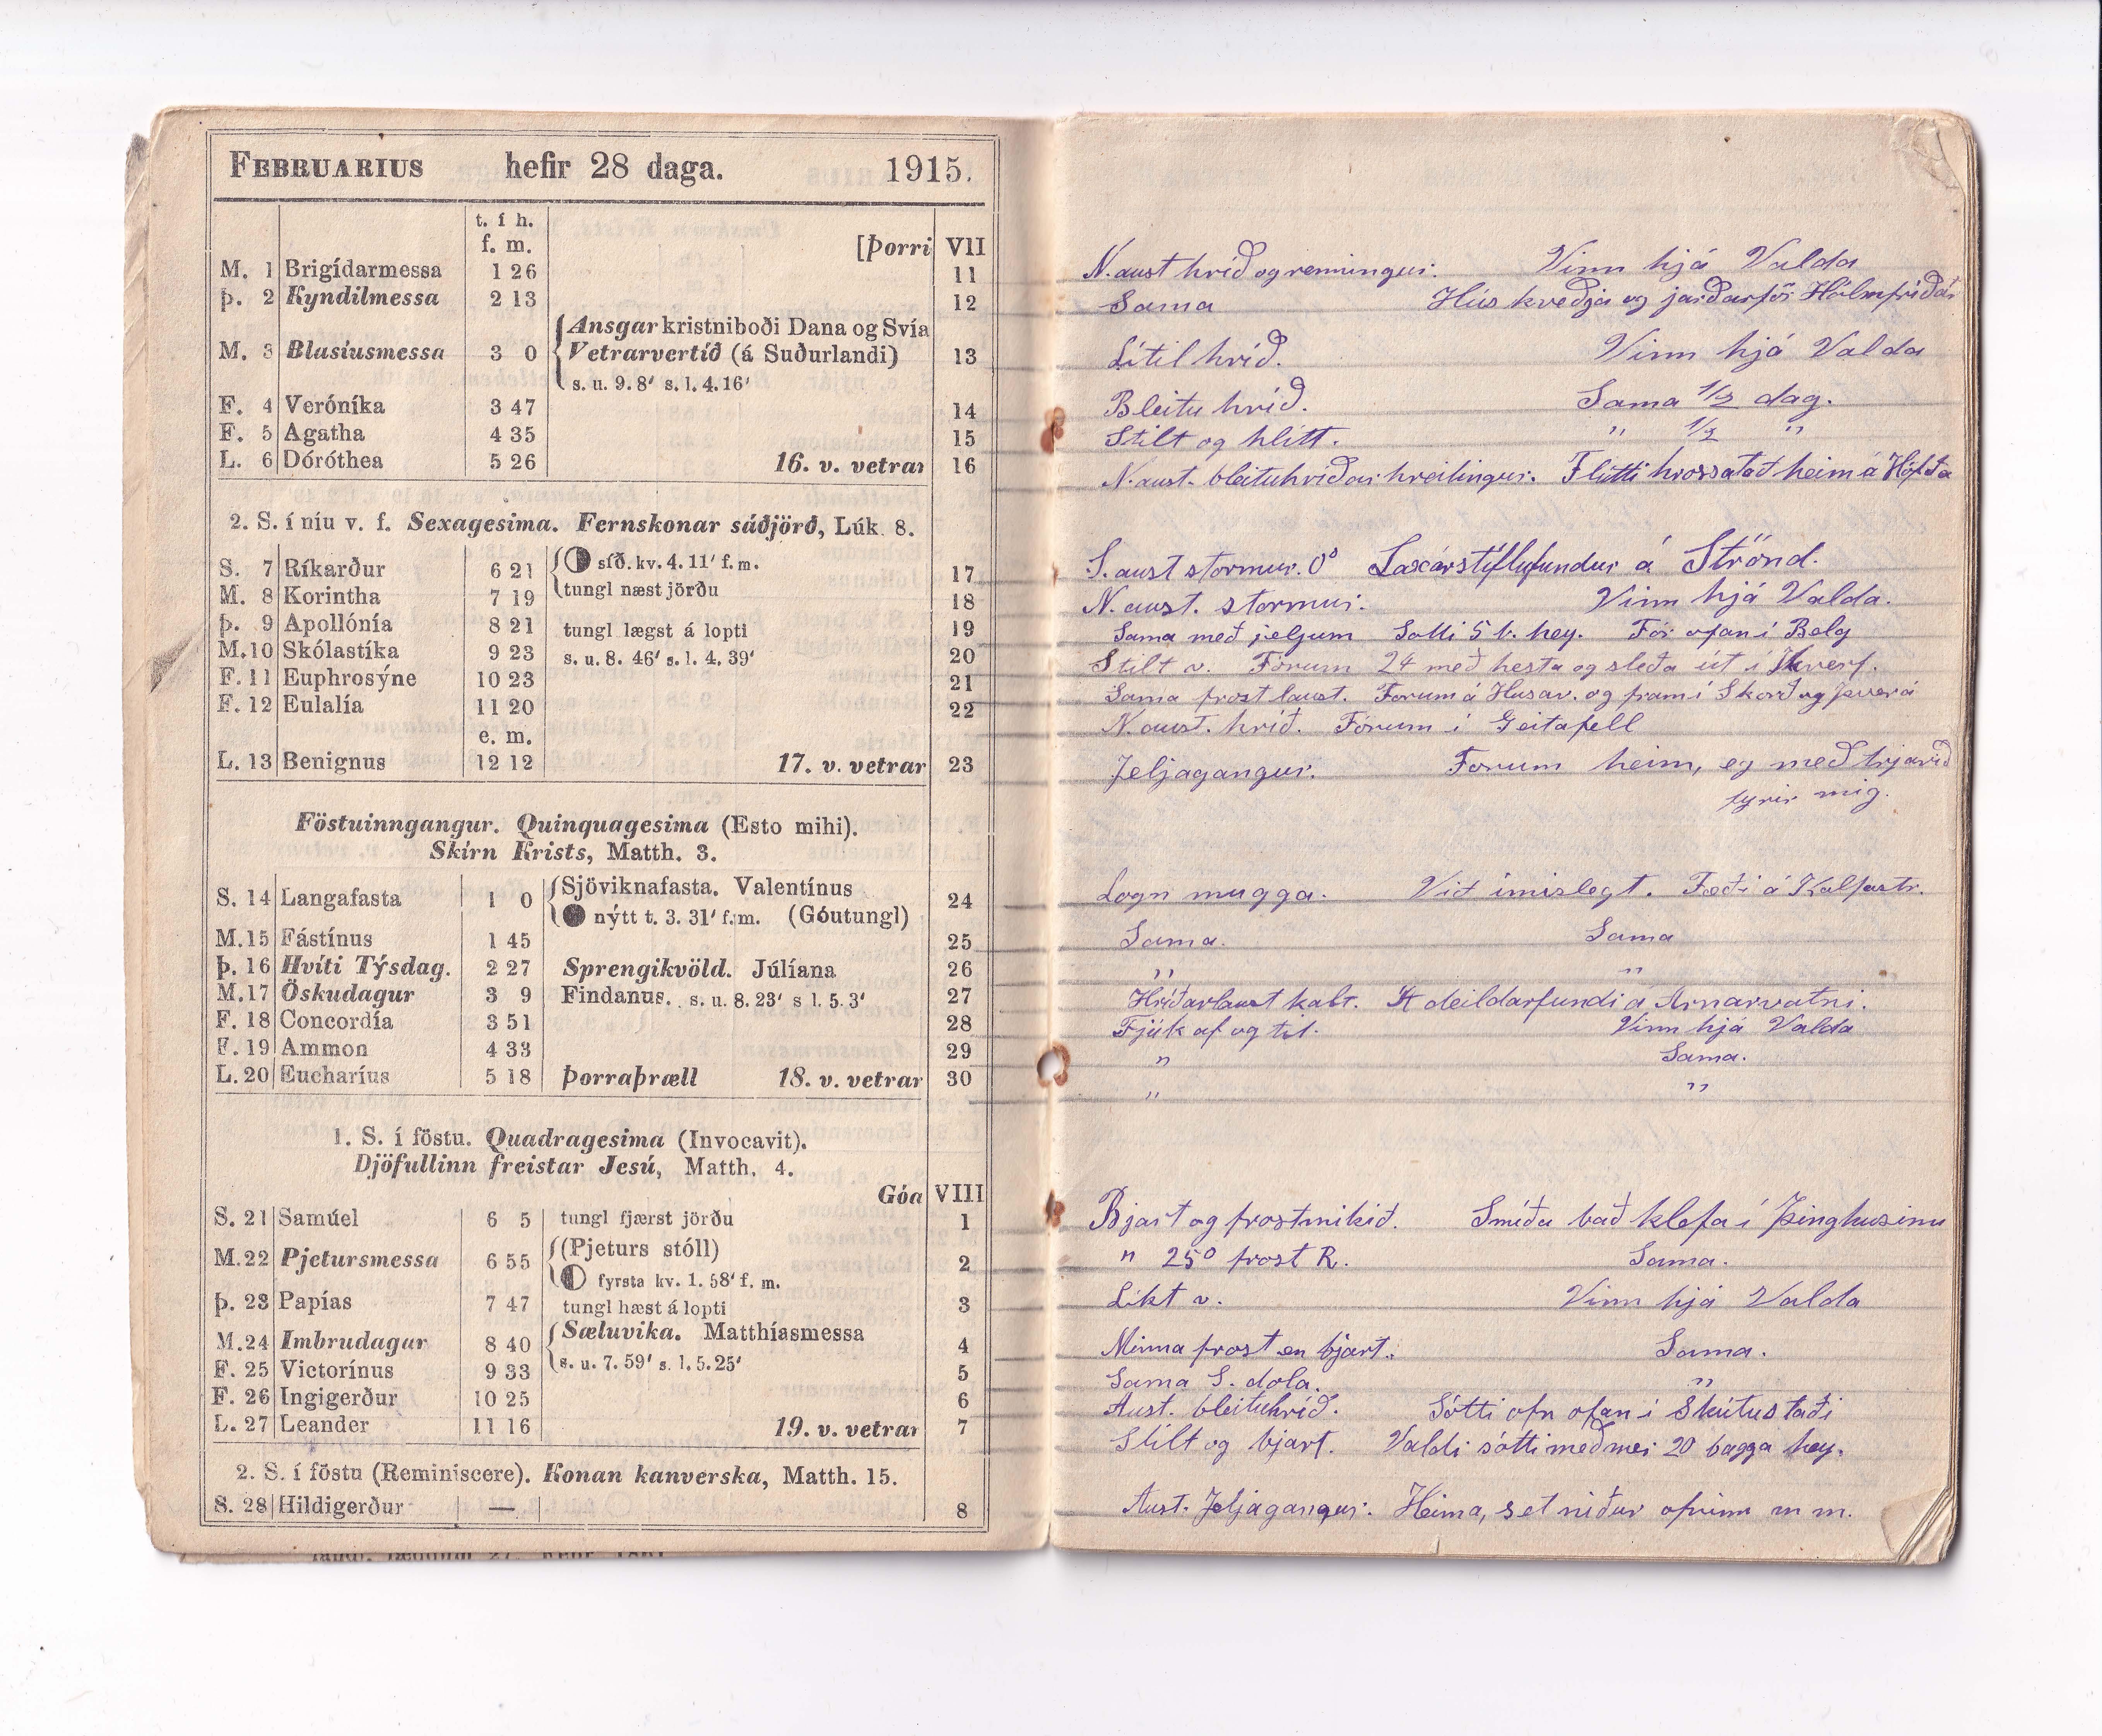 FEBRUARIUS hefir 28 daga. 1915.
t. í h.
f. m. [Þorri VII
M. 1 Brigídarmessa 1 26 11
Þ. 2 Kyndilmessa 2 13 12
Ansgar kristniboði Dana og Svía
M. 3 Blasíusmessa 3 0 Vetrarvertíð (á Suðurlandi) 13
s. u. 9. 8′ s. l. 4. 16′
F. 4 Verónika 3 47 14
F. 5 Agatha 4 35 15
L. 6 Dóróthea 5 26 16. v. vetrar 16
2. S. í níu v. f. Sexagesima. Fernskonar sáðjörð, Lúk. 8.
S. 7 Ríkarður 6 21 síð. kv. 4. 11′ f. m. 17
M. 8 Korintha 7 19 tungl næst jörðu 18
Þ. 9 Apollónía 8 21 tungl lægst á lopti 19
M. 10 Skólastíka 9 23 s. u. 8. 46′ s. l. 4. 39′ 20
F. 11 Euphrosýne 10 23 21
F. 12 Eulalía 11 20 22
e. m.
L. 13 Benignus 12 12 17. v. vetrar 23
Föstuinngangur. Quinquagesima (Esto mihi).
Skírn Krists, Matth. 3.
S. 14 Langafasta 1 0 Sjöviknafasta. Valentínus 24
nýtt t. 3. 31′ f. m. (Góutungl)
M. 15 Fástínus 1 45 25
Þ. 16 Hvíti Týsdag. 2 27 Sprengikvöld. Júlíana 26
M. 17 Öskudagur 3 9 Findanus. s. u. 8. 23′ s l. 5. 3′ 27
F. 18 Concordía 3 51 28
F. 19 Ammon 4 33 29
L. 20 Eucharíus 5 18 Þorraþræll 18. v. vetrar 30
1. S. í föstu. Quadragesima (Invocavit).
Djöfullinn freistar Jesú, Matth. 4.
Góa VIII
S. 21 Samúel 6 5 tungl fjærst jörðu 1
M. 22 Pjetursmessa 6 55 (Pjeturs stóll) 2
fyrsta kv. 1. 58′ f. m.
Þ. 23 Papías 7 47 tungl hæst á lopti 3
M. 24 Imbrudagar 8 40 Sæluvika. Matthíasmessa 4
F. 25 Victorínus 9 33 s. u. 7. 59′ s. l. 5. 25′ 5
F. 26 Ingigerður 10 25 6
L. 27 Leander 11 16 19. v. vetrar 7
2. S. í föstu (Reminiscere). Konan kanverska, Matth. 15.
S. 28 Hildigerður — 8
N. aust hríð og renningur. Vinn hjá Valda
Sama Hús kveðja og jarðarför Hólmfríðar
Lítil hríð. Vinn hjá Valda
Bleitu hríð. Sama 1/2 dag.
Stilt og hlítt. " 1/2 "
N. aust. bleituhríðar hreitingur. Flutti hrossatað heim á Höfða
S. aust stormur. 0° Laxárstíflufundur á Strönd.
N. aust. stormur. Vinn hjá Valda.
Sama með jeljum Sotti 5 b. hey. Fór ofan í Belg
Stilt v. Fórum 24 með hesta og sleða út í Hverf.
Sama frost laust. Forum á Husav. og fram í Skorð og Þverá
N. aust. hríð. Fórum í Geitafell
Jeljagangur. Forum heim, eg með trjavið
fyrir mig.
Logn mugga. Við ímislegt. Fæði á Kalfastr.
Sama. Sama
" "
Hríðarlaust kalt. Á deildarfundi á Arnarvatni.
Fjúk af og til. Vinn hjá Valda
" Sama.
" "
Bjart og frostmikið. Smíða bað klefa í Þinghusinu
" 25° frost R. Sama.
Líkt v. Vinn hjá Valda
Minna frost en bjart. Sama.
Sama S. dola. "
Aust. bleituhríð. Sótti ofn ofan í Skútustaði
Stilt og bjart. Valdi sótti með mer 20 bagga hey.
Aust. Jeljagangur. Heima, set niður ofninn m m.